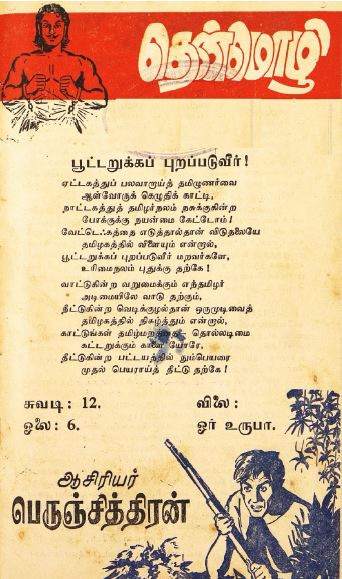 தென்மொழி
பூட்டறுக்கப் புறப்படுவீர்!
ஏட்டகத்துப் பலவாறாய்த் தமிழுணர்வை
ஆள்வோருக் கெழுதிக் காட்டி,
நாட்டகத்துத் தமிழர்நலம் நசுக்குகின்ற
போக்குக்கு நயன்மை கேட்டோம்!
வேட்டெஃகத்தை எடுத்தால்தான் விடுதலையே
தமிழகத்தில் விளையும் என்றால்,
பூட்டறுக்கப் புறப்படுவீர் மறவர்களே,
உரிமைநலம் புதுக்கு தற்கே!
வாட்டுகின்ற வறுமைக்கும் எந்தமிழர்
அடிமையிலே வாடு தற்கும்,
நீட்டுகின்ற வெடிக்குழல்தான் ஒருமுடிவைத்
தமிழகத்தில் நிகழ்த்தும் என்றால்,
காட்டுங்கள் தமிழ்மறத்தைத் தொல்லடிமை
கட்டறுக்கும் காளை யோரே,
தீட்டுகின்ற பட்டயத்தில் நும்பெயரை
முதல் பெயராய்த் தீட்டு தற்கே!
சுவடி: 12. விலை:
ஓலை: 6. ஓர் உருபா.
ஆசிரியர்
பெருஞ்சித்திரன்